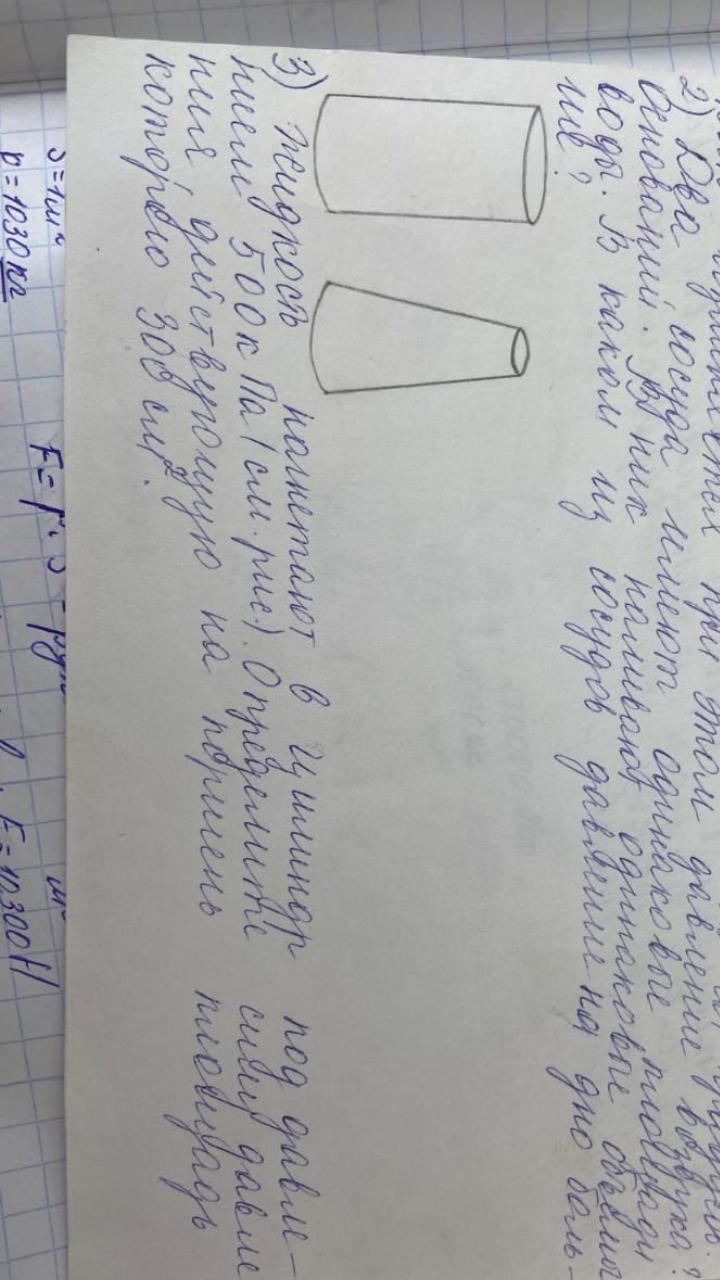 при этом давление воздуха?
2) Два сосуда имеют одинаковые площади
оснований. В них наливают одинаковые объёмы
воды. В каком из сосудов давление на дно боль-
ше?
3) Жидкость нагнетают в цилиндр под давле-
нием 500 кПа (см. рис.) Определите силу давле
ния действующую на поршень площадь
которого 300 см².
S=1м²
p=1030 кг
F= p·S
F=10300Н